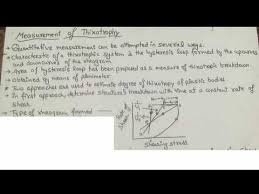 Measurement of Thixotrophy
→ Quantitative measurement can be attempted in several ways.
→ Characteristic of a thixotropic system is the hysteresis loop formed by the upcurves
and downcurves of the rheogram
→ Area of hysteresis loop has been proposed as a measure of thixotropic breakdown
→ obtained by means of planimeter.
* Two approaches are used to estimate degree of thixotropy of plastic bodies
→ In first approach, determine structural breakdown with time at a constant rate of
shear.
→ Type of rheogram formed
Rate of shear
Shearing stress